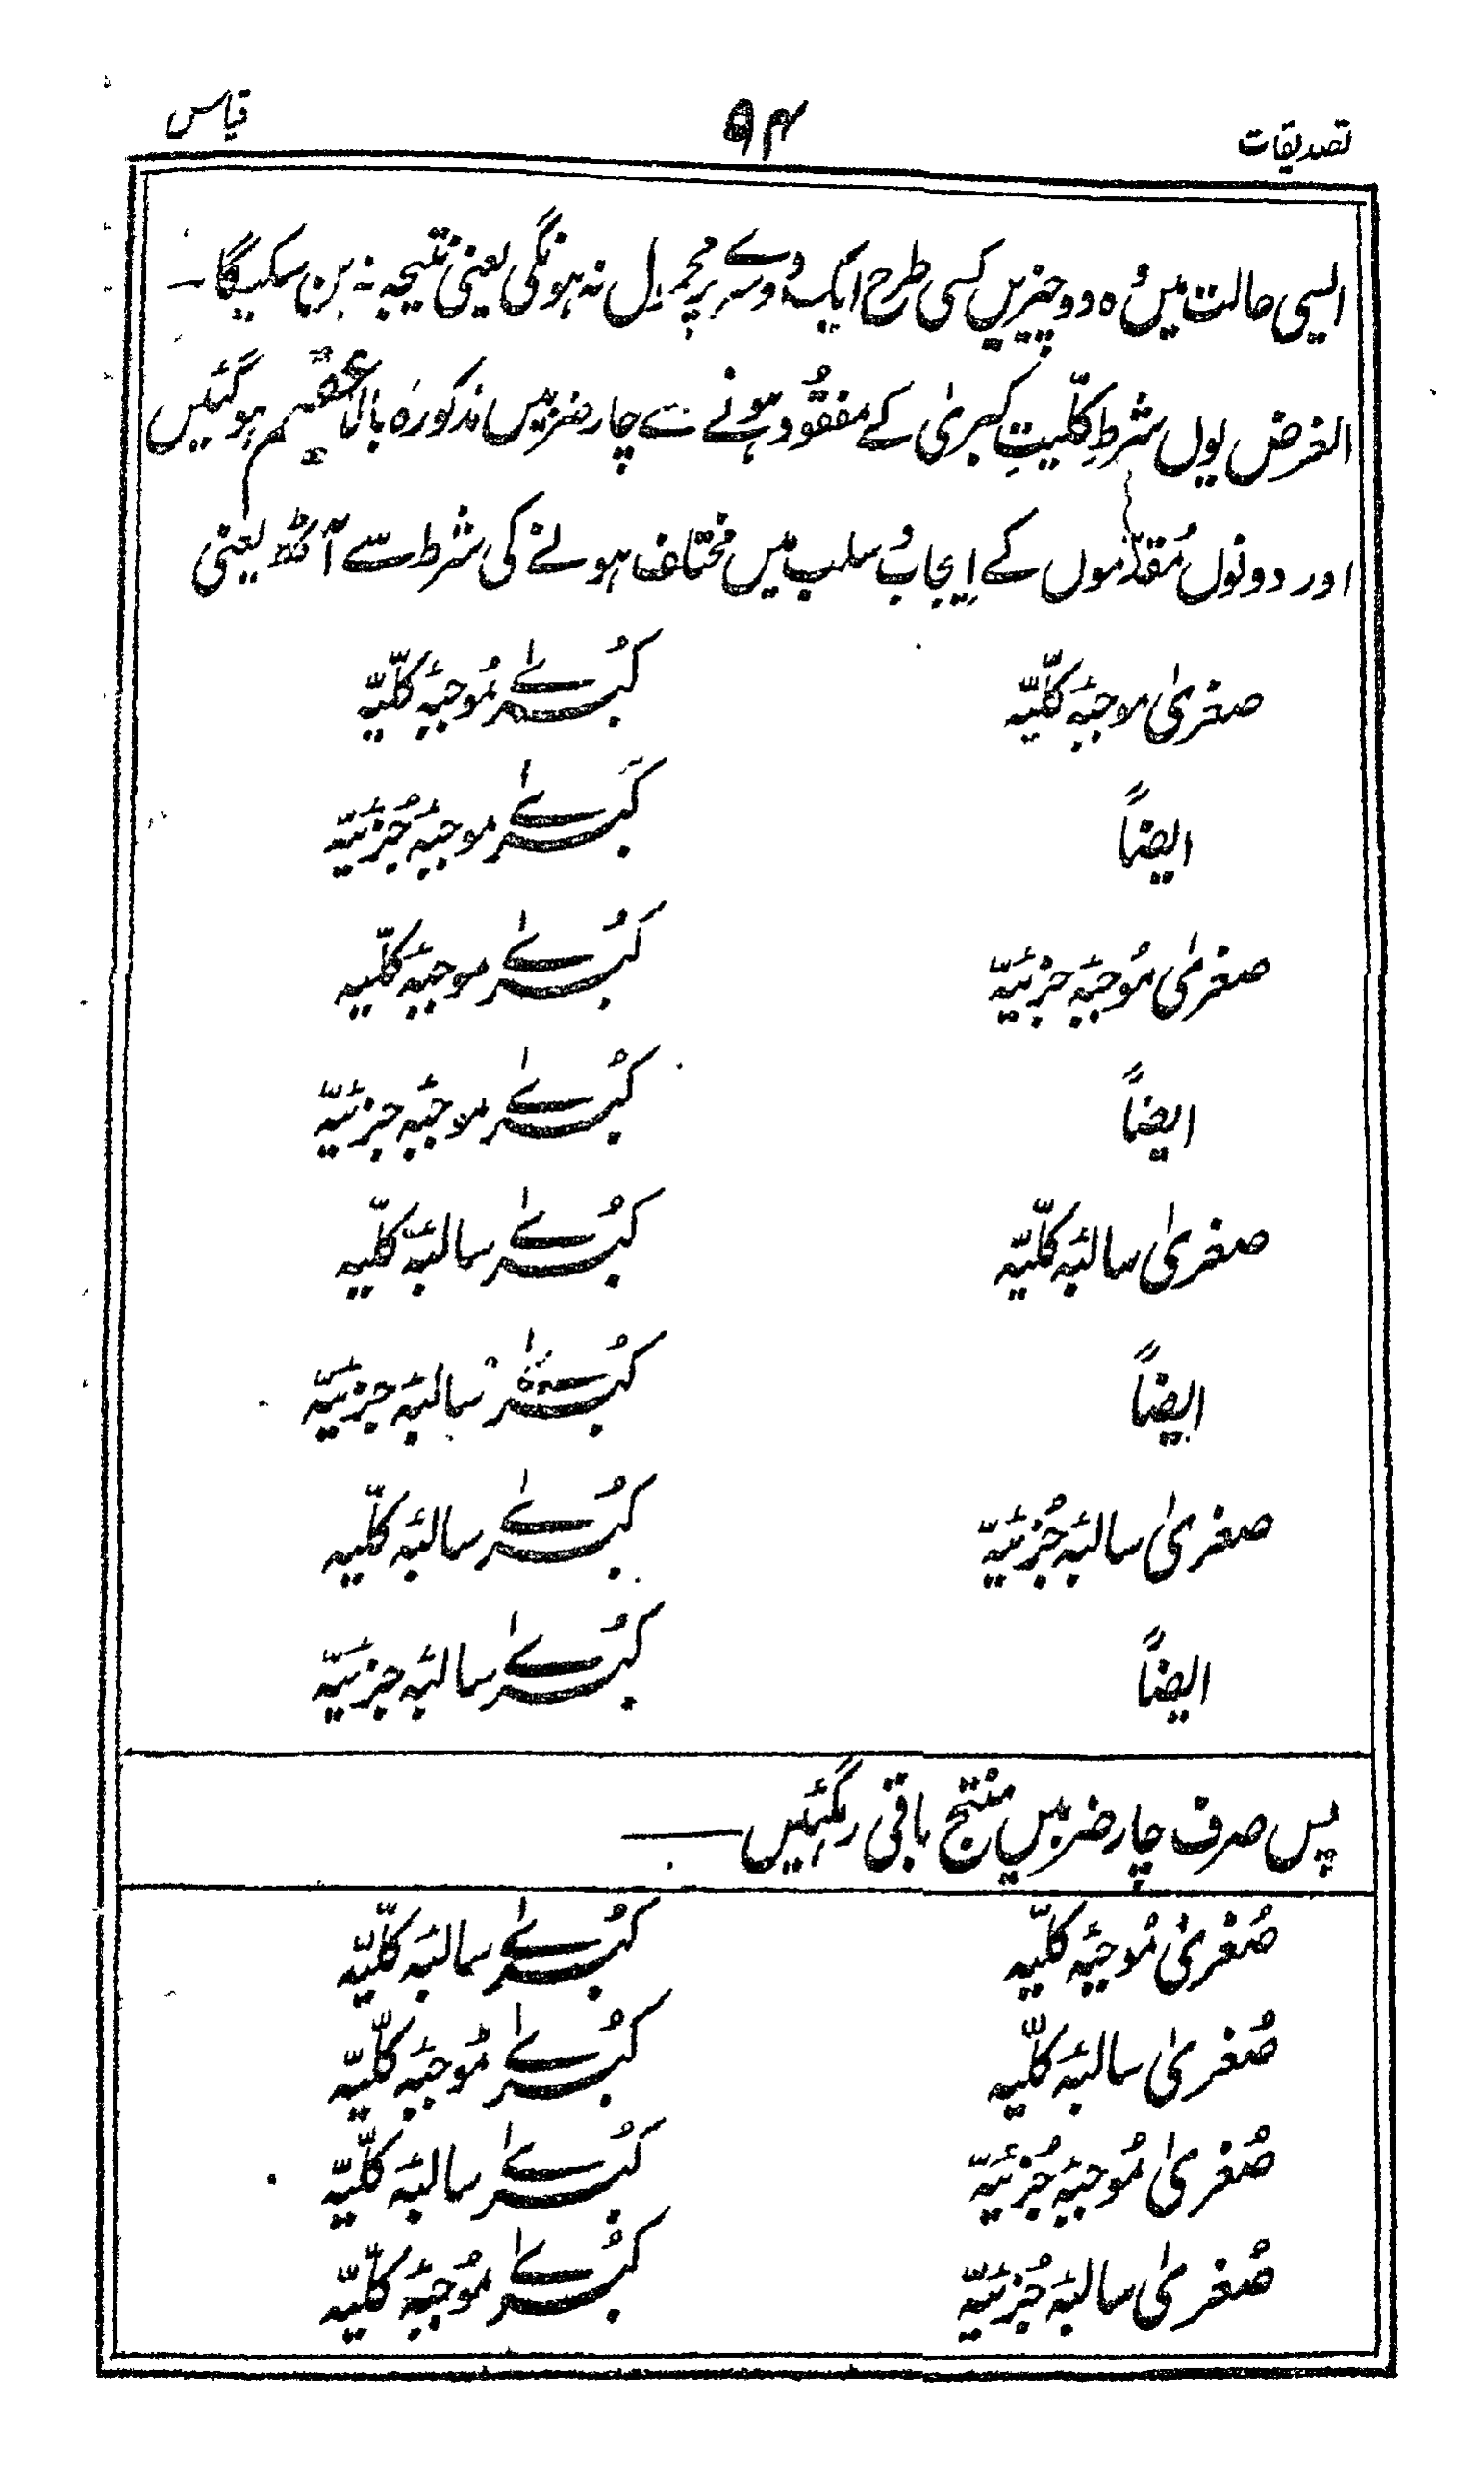 تصدیقات ۹۴ قیاس
ایسی حالت میں وہ دو چیزیں کسی طرح ایک دوسرے پر محمول نہ ہونگی یعنی نتیجہ نہ بن سکیگا۔
الغرض یوں شرطِ کلّیتِ کبریٰ کے مفقُود ہونے سے چار ضربیں مذکورہ بالا عقیم ہوگئیں
اور دونوں مُقدّموں کے اِیجاب وُ سلب میں مختلف ہونے کی شرط سے آٹھ یعنی
صغریٰ موجبۂ کلّیّہ کبُرےٰ مُوجبۂ کلّیّہ
ایضاً کبرےٰ موجبۂ جُزئیّہ
صغریٰ مُوجبۂ جزئیّہ کبُرےٰ موجبۂ کلّیہ
ایضاً کبُرےٰ موجبۂ جزئیّہ
صغریٰ سالبۂ کلّیّہ کبُرےٰ سالبۂ کلّیہ
ایضاً کبُرےٰ سالبۂ جزئیّہ
صغریٰ سالبۂ جُزئیّہ کبُرےٰ سالبۂ کلّیہ
ایضاً کبُرےٰ سالبۂ جزئیّہ
پس صرف چار ضربیں منتج باقی رہگئیں——
صُغریٰ مُوجبۂ کلّیہ کبُرےٰ سالبۂ کلّیّہ
صُغریٰ سالبۂ کلّیہ کبُرےٰ مُوجبۂ کلّیّہ
صُغریٰ مُوجبۂ جُزئیّہ کبُرےٰ سالبۂ کلّیّہ
صُغریٰ سالبۂ جُزئیّہ کبُرےٰ مُوجبۂ کلّیّہ